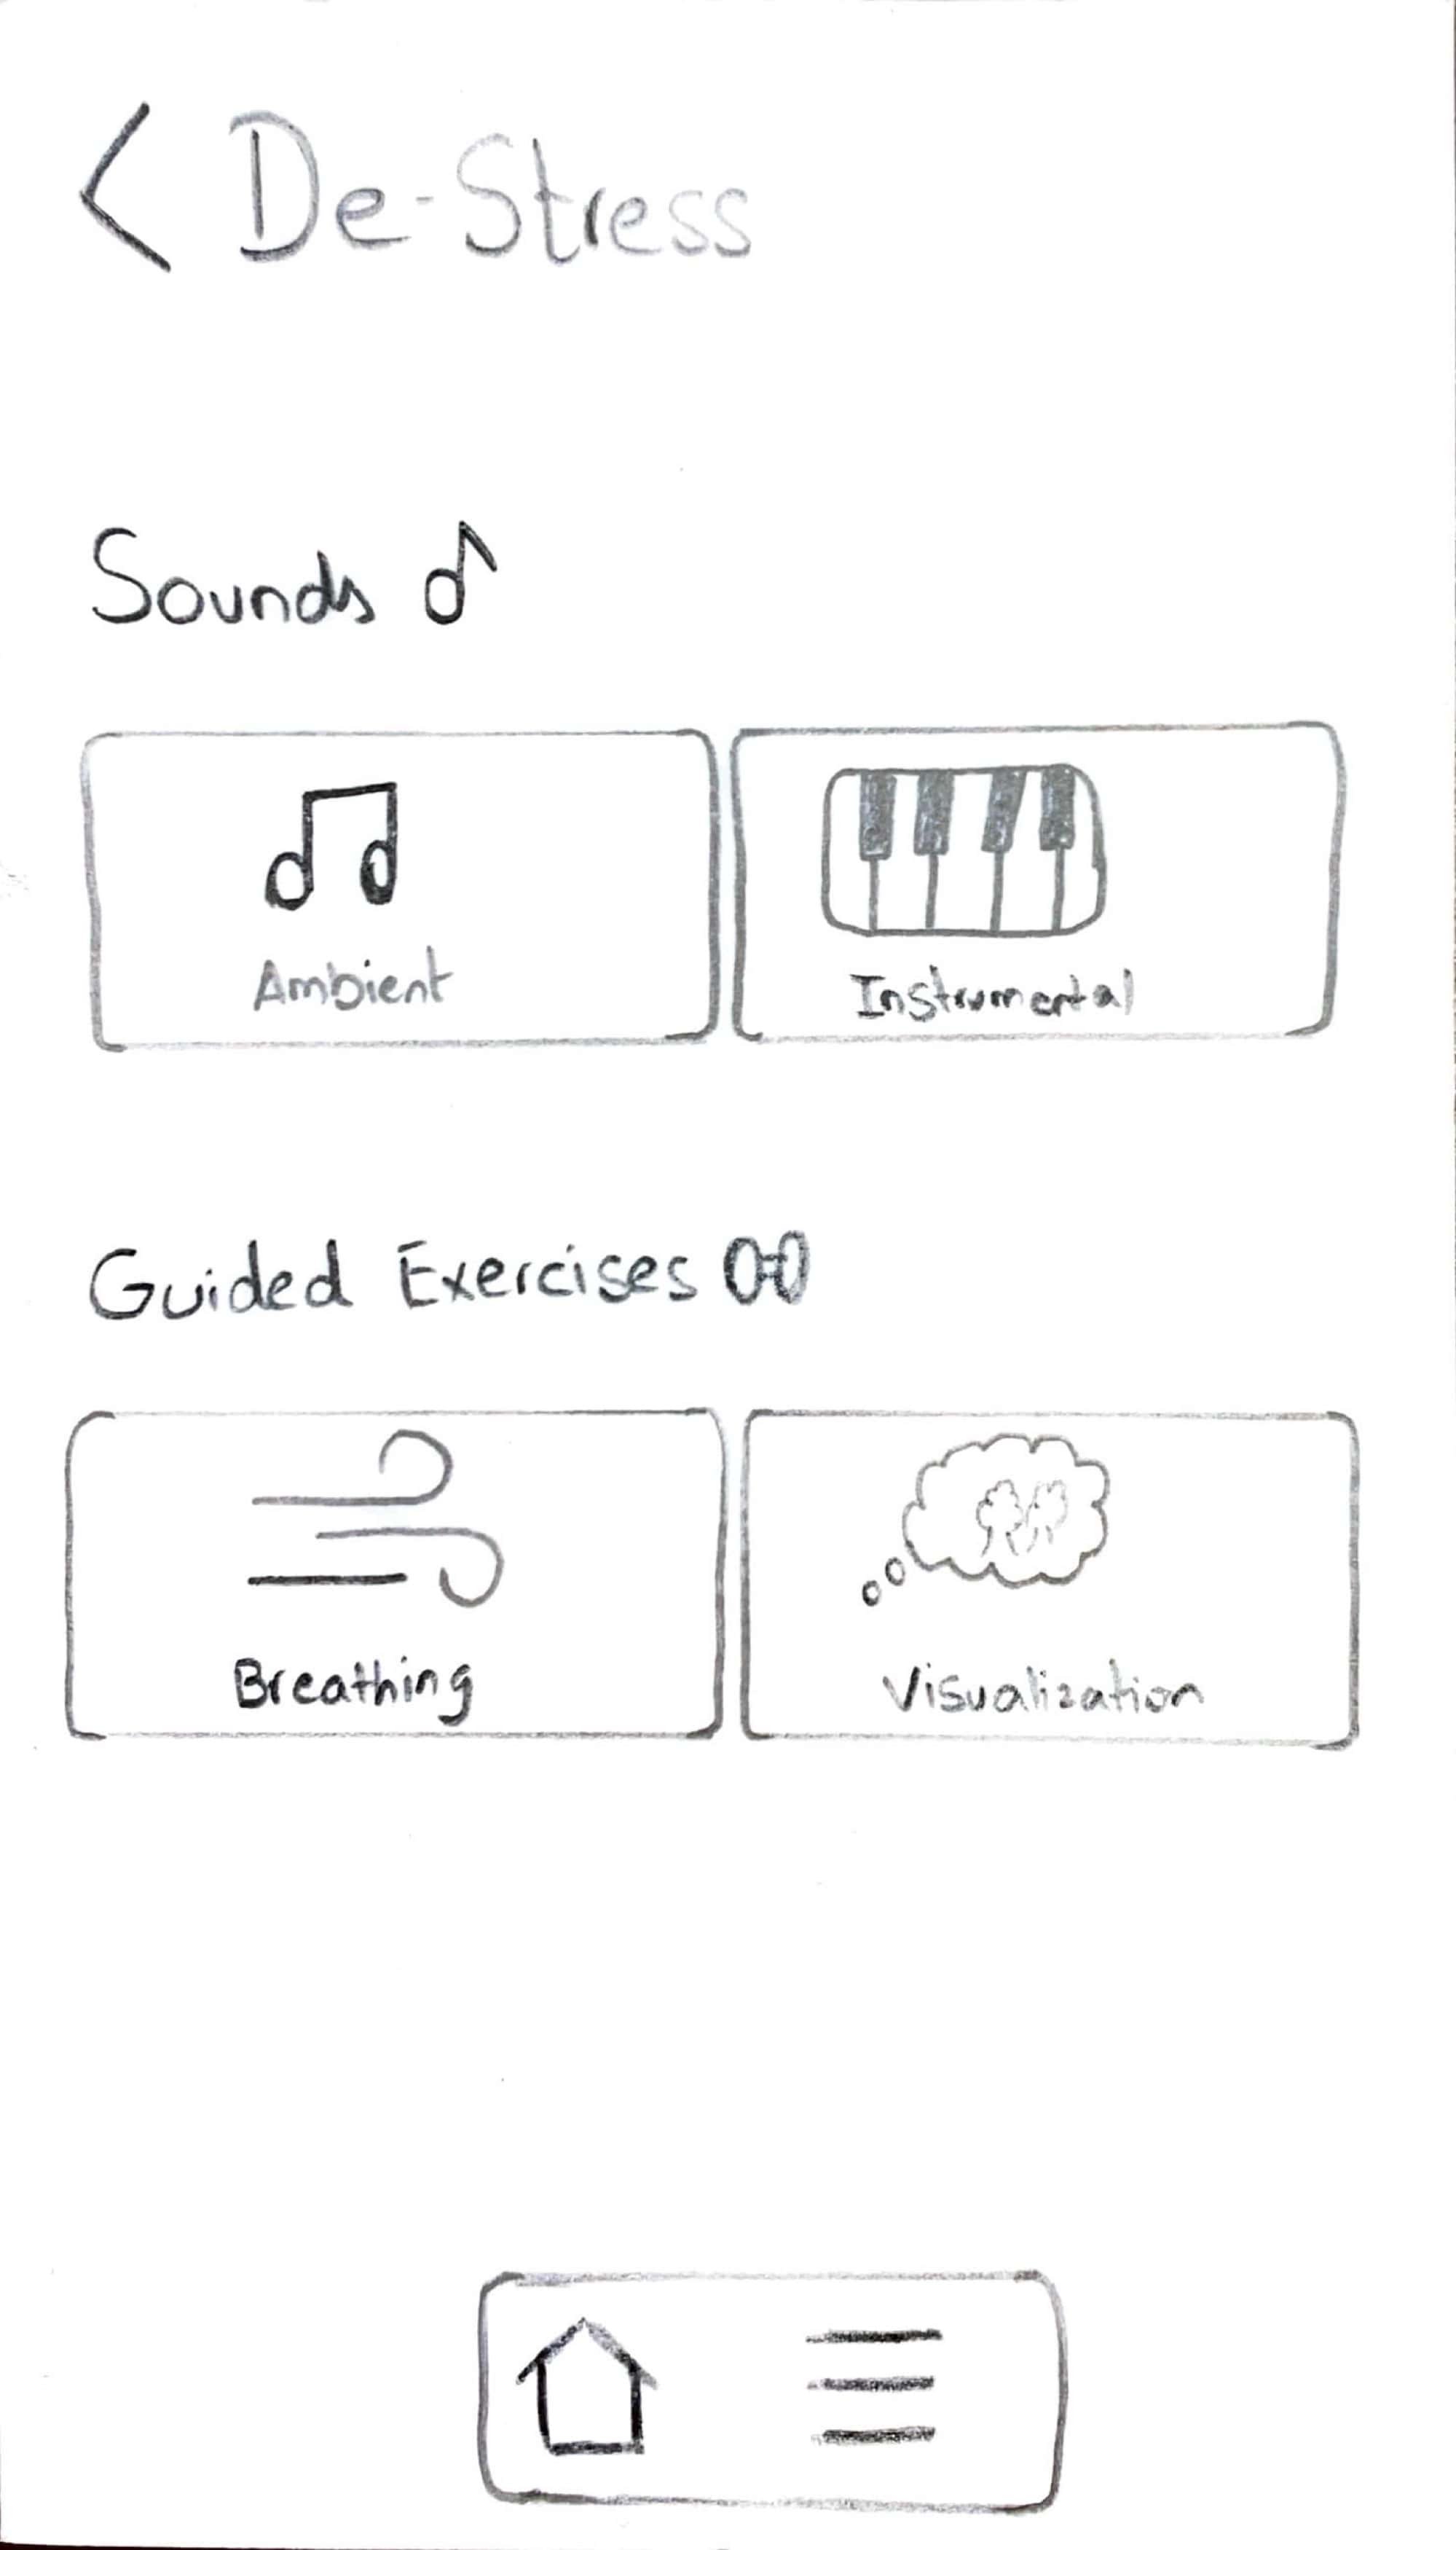 De-Stress
Sounds
Ambient
Instrumental
Guided Exercises
Breathing
Visualization